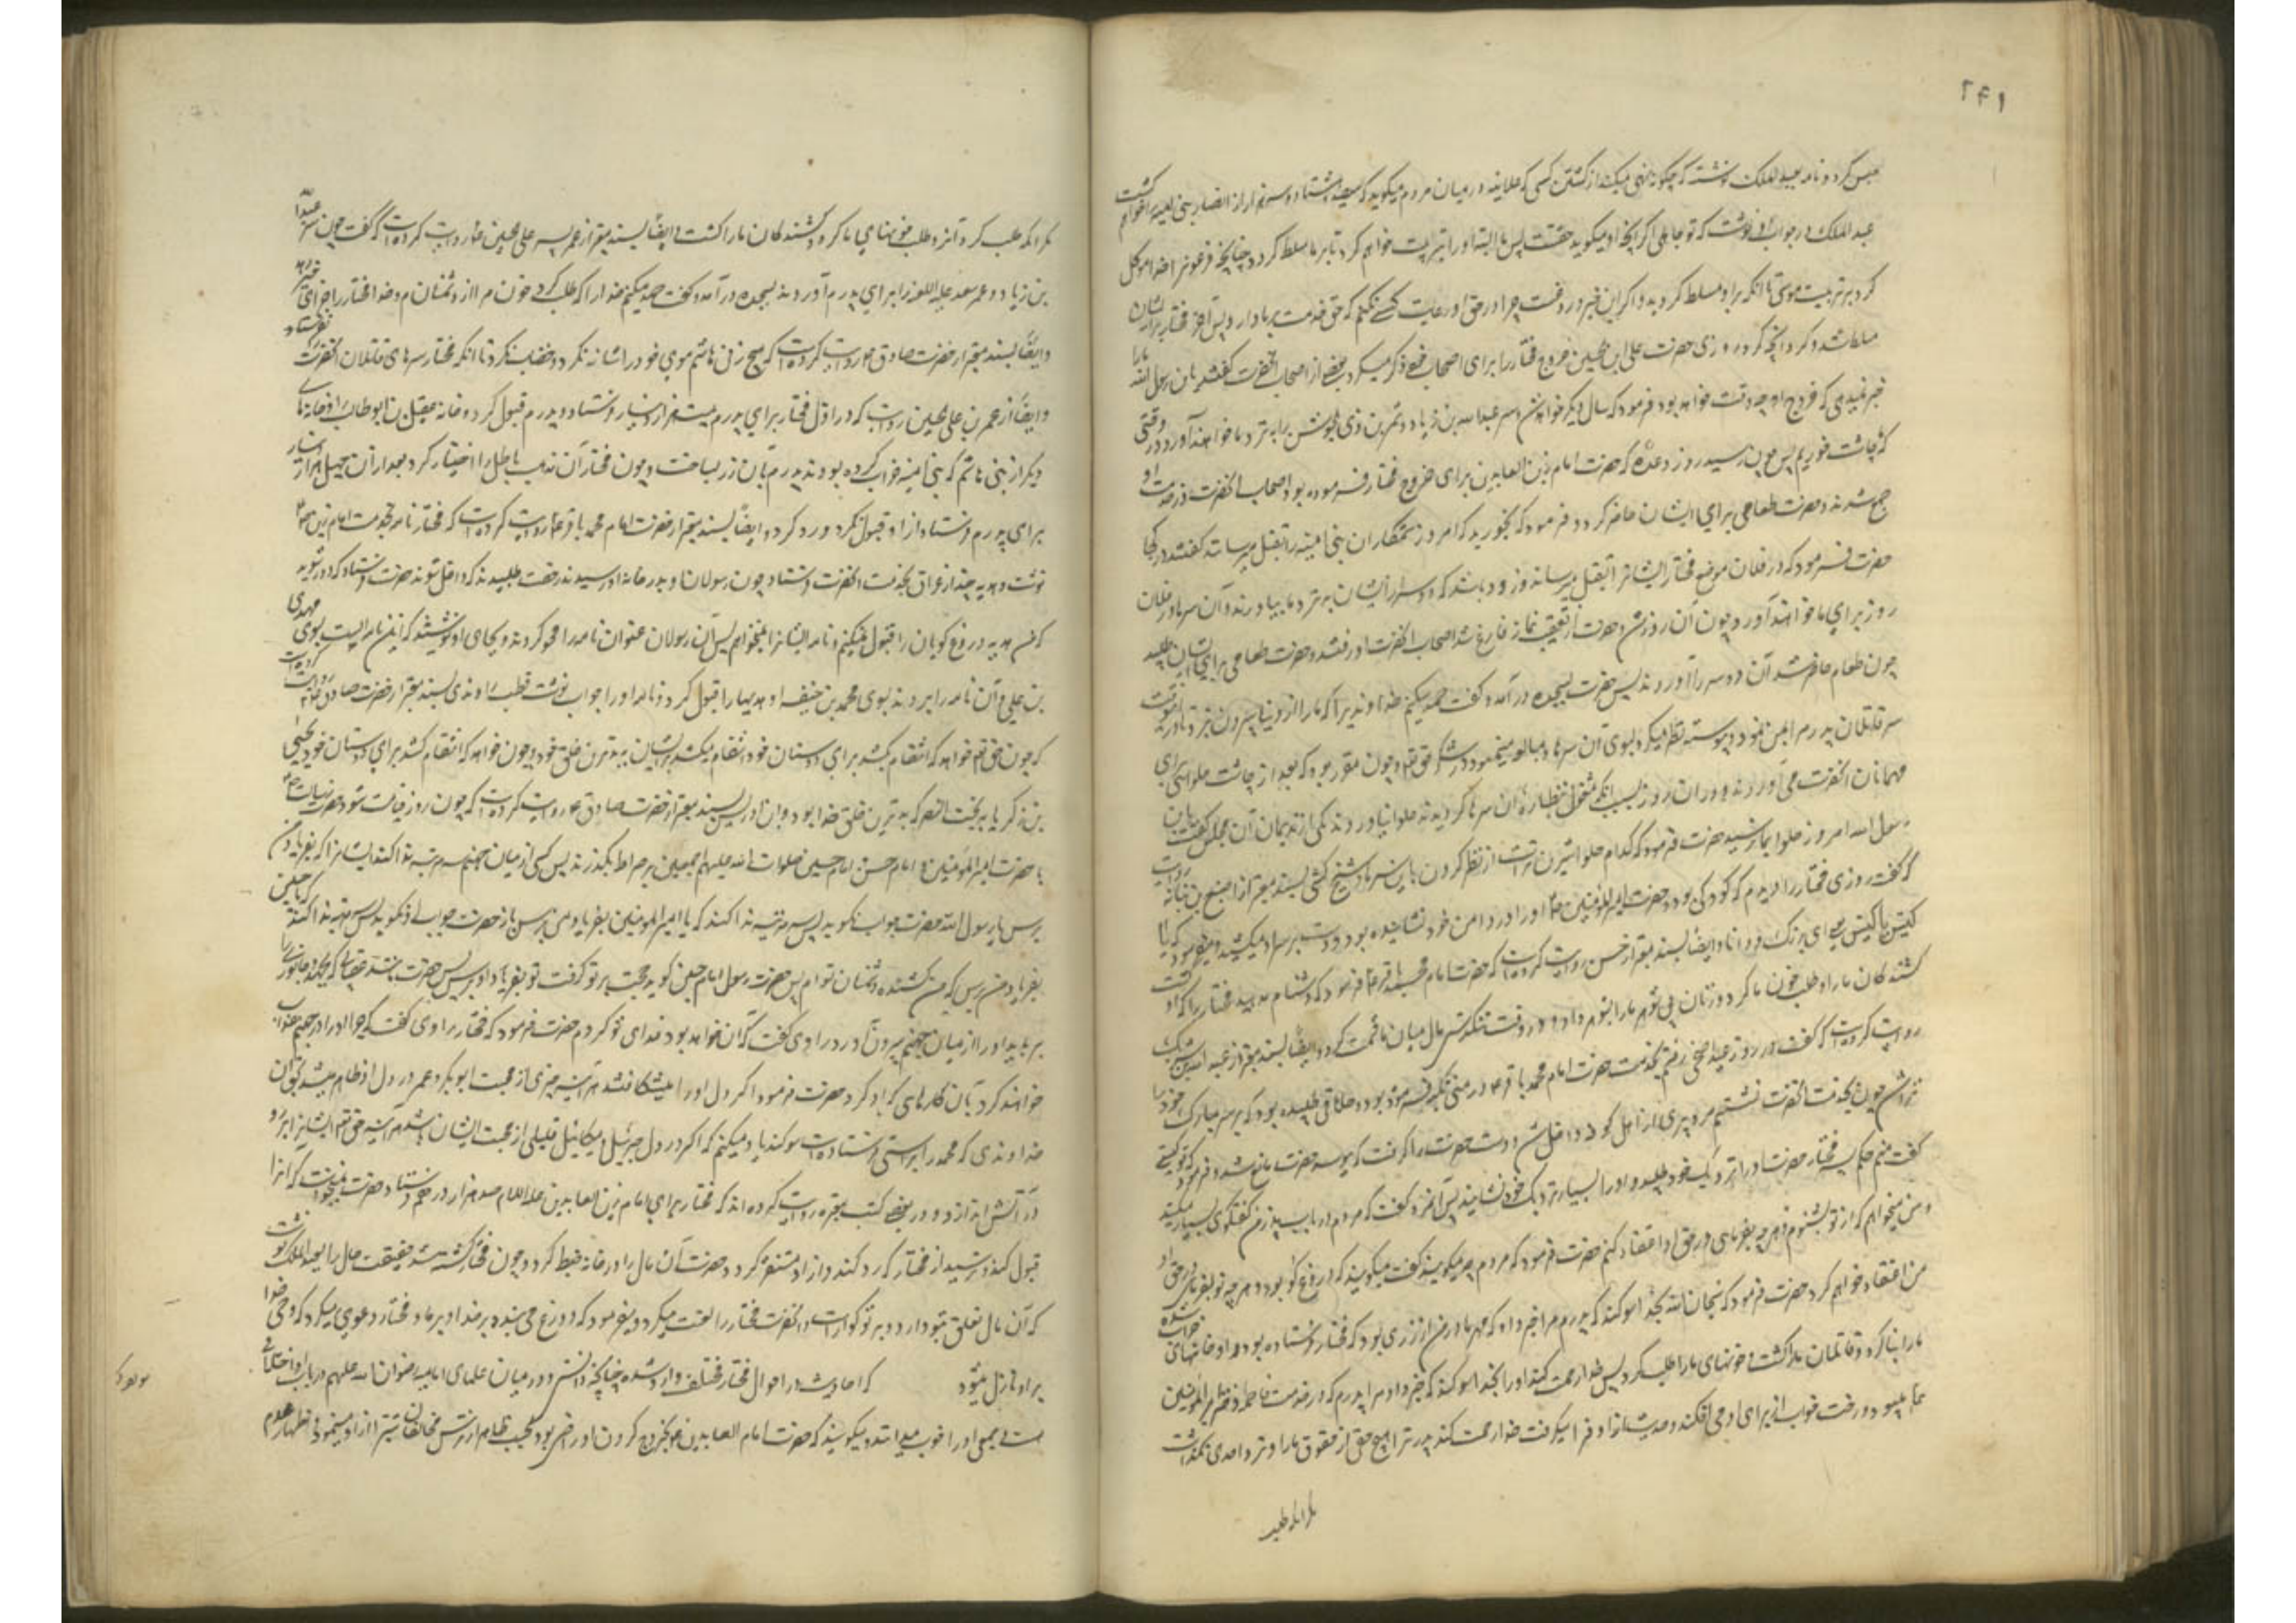 ۲۴۱
حبس کرد و نامه بعبد الملک نوشت که چگونه نهی میکند از کشتن کسی که علانیه در میان مردم میگوید که سیصد و هشتاد و سه هزار از انصار بنی امیه را خواهم کشت
عبد الملک در جواب او نوشت که تو جاهلی اگر آنچه او میگوید حقست پس ما البته او را تربیت خواهم کرد تا بر ما مسلط گردد چنانچه فرعون را خدا موکل
کرد بر تربیت موسی تا آنکه بر او مسلط گردید و اگر این خبر دروغست چرا در حق او رعایت کسی نکنم که حق خدمت بر ما دارد پس آخر مختار بر ایشان
مسلط شد و کرد آنچه کرد و روزی حضرت علی بن الحسین خروج مختار را برای اصحاب خود ذکر میکرد بعضی از اصحاب آنحضرت گفتند یابن رسول الله ما را
خبر نمیدهی که خروج او چه وقت خواهد بود فرمود که سال دیگر خواهد شد و سر عبید الله بن زیاد و شمر بن ذی الجوشن را به نزد ما خواهند آورد در وقتی
که چاشت خوریم پس چون رسید روز وعده که حضرت امام زین العابدین برای خروج مختار فرموده بود اصحاب آنحضرت در خدمت او
جمع شدند و حضرت طعامی برای ایشان حاضر کرد و فرمود که بخورید که امروز ستمکاران بنی امیه را بقتل میرسانند گفتند در کجا
حضرت فرمود که در فلان موضع مختار ایشانرا بقتل میرساند و زود باشد که دو سر از ایشان به نزد ما بیاورند و آن سرها در فلان
روز برای ما خواهند آورد و چون آن روز شد و حضرت از تعقیب نماز فارغ شد اصحاب آنحضرت آمدند و حضرت طعامی برای ایشان طلبید
چون طعام حاضر شد آن دو سر را آوردند پس حضرت بسجده در آمد و گفت حمد میکنم خداوندی را که مرا از دنیا بیرون نبرد تا آنکه
سر قاتلان پدرم را بمن نمود و پیوسته نظر میکرد بسوی آن سرها و مبالغه مینمود در شکر حق تعالی و چون مقرر بود که بعد از چاشت حلوائی برای
مهمانان آنحضرت می آوردند و در آن روز بسبب آنکه مشغول نظاره آن سرها گردیدند حلوا نیاوردند یکی از ندیمان آن مجلس گفت یابن
رسول الله امروز حلوا بما نرسید حضرت فرمود که کدام حلوا شیرین تر است از نظر کردن باین سرها و شیخ کشی بسند معتبر از اصبغ بن نباته روایت
که گفت روزی مختار را دیدم که کودکی بود و حضرت امیر المؤمنین ع او را در دامن خود نشانیده بود و دست بر سر او میکشید و میفرمود که یا
کیّس یا کیّس یعنی ای زیرک و دانا و ایضاً بسند معتبر از حسن روایت کرده است که حضرت امام محمد باقر ع فرمود که دشنام مدهید مختار را که او کشت
کشندکان ما را و طلب خون ما کرد و زنان بی شوهر ما را بشوهر داد و در وقت تنگدستی مال میان ما قسمت کرد و ایضاً بسند معتبر از عبد الله بن شریک
روایت کرده است که گفت در روز عید اضحی رفتم بخدمت حضرت امام محمد باقر ع در منی تکیه فرموده بود و حلاقی طلبیده بود که سر مبارک خود را
بتراشد چون بخدمت آنحضرت نشستم مرد پیری از اهل کوفه داخل شد و دست حضرت را گرفت که ببوسد حضرت مانع شد و فرمود که تو کیستی
گفت منم حکم پسر مختار حضرت او را نزدیک خود طلبید و او را بسیار نزدیک خود نشانید پس آنمرد گفت که مردم در باب پدر من گفتگوی بسیار میکنند
و من میخواهم که از تو بشنوم و هر چه بفرمائی در حق او اعتقاد کنم حضرت فرمود که مردم چه میگویند گفت میگویند که دروغ گو بود و هر چه تو بفرمائی در حق او
من اعتقاد خواهم کرد حضرت فرمود که سبحان الله بخدا سوگند که پدرم مرا خبر داد که مهر مادر من از زری بود که مختار فرستاده بود و او خانهای خراب شده
ما را بنا کرد و قاتلان ما را کشت و خونهای ما را طلب کرد پس خدا رحمت کند او را بخدا سوگند که خبر داد مرا پدرم که در خدمت فاطمه دختر امیر المؤمنین
میبود و رخت خواب از برای او می افکند و حدیث از او فرا میگرفت خدا رحمت کند پدر ترا هیچ حقی از حقوق ما را نزد احدی نگذاشت
مگر آنکه طلب
مگر آنکه طلب کرد آنرا و طلب خونهای ما کرد و کشندکان ما را کشت و ایضاً بسند معتبر از عمر پسر علی بن الحسین ع روایت کرده است که گفت چون سر عبید الله
بن زیاد و عمر سعد علیه اللعنه را برای پدرم آوردند بسجده در آمد و گفت حمد میکنم خدا را که طلب کرد خون مرا از دشمنان من و خدا مختار را جزای خیر دهد
و ایضاً بسند معتبر از حضرت صادق ع روایت کرده است که هیچ زنی از بنی هاشم موی خود را شانه نکرد و خضاب نکرد تا آنکه مختار سرهای قاتلان آنحضرت فرستاد
و ایضاً از عمر بن علی بن الحسین روایت که در اول مختار برای پدرم بیست هزار دینار فرستاد و پدرم قبول کرد و خانه عقیل بن ابوطالب و خانه‌های
دیگر از بنی هاشم که بنی امیه خراب کرده بودند پدرم بآن زر بساخت و چون مختار آن مذهب باطل را اختیار کرد بعد از آن چهل هزار دینار
برای پدرم فرستاد از او قبول نکرد و رد کرد و ایضاً بسند معتبر از حضرت امام محمد باقر ع روایت کرده است که مختار نامه بخدمت امام زین العابدین
نوشت و هدیه چند از عراق بخدمت آنحضرت فرستاد چون رسولان او بدر خانه او رسیدند رخصت طلبیدند که داخل شوند حضرت فرستاد که دور شوید
که من هدیه دروغ گویان را قبول نمیکنم و نامه ایشانرا نمیخوانم پس آن رسولان عنوان نامه را محو کردند و بجای او نوشتند که این نامه ایست بسوی مهدی
بن علی و آن نامه را بردند بسوی محمد بن حنفیه و او هدیها را قبول کرد و نامه او را جواب نوشت قطب راوندی بسند معتبر از حضرت صادق ع روایت کرده است
که چون حق تعالی خواهد که انتقام بکشد برای دوستان خود انتقام میکشد برای ایشان به بدترین خلق خود و چون خواهد که انتقام کشد برای دوستان خود یحیی
بن زکریا به بخت النصر که بدترین خلق خدا بود و ابن ادریس بسند معتبر از حضرت صادق ع روایت کرده است که چون روز قیامت شود حضرت رسالت
با حضرت امیر المؤمنین و امام حسن و امام حسین صلوات الله علیهم اجمعین بر صراط بگذرند پس کسی از میان جهنم سه مرتبه ندا کند ایشانرا که بفریاد من
برس یا رسول الله حضرت جواب نگوید پس سه مرتبه ندا کند که یا امیر المؤمنین بفریاد من برس باز حضرت جواب نگوید پس سه مرتبه ندا کند که یا حسین
بفریاد من برس که من کشنده دشمنان توام پس حضرت رسول بامام حسین گوید حجت بر تو گرفت تو بفریاد او برس پس حضرت
بر باید او را از میان جهنم بیرون آورد راوی گفت که آن که خواهد بود فدای تو گردم حضرت فرمود که مختار راوی گفت که چرا او را در جهنم عذاب
خواهند کرد با آن کارهای که او کرد حضرت فرمود اگر دل او را میشکافتند هر آینه چیزی از محبت ابوبکر و عمر در دل او ظاهر میشد بحق آن
خداوندی که محمد را براستی فرستاده است سوگند یاد میکنم که اگر در دل جبرئیل و میکائیل قلیلی از محبت ایشان باشد هر آینه حق تعالی ایشانرا بر رو
در آتش اندازد و در بعضی کتب معتبره روایت کرده اند که مختار برای امام زین العابدین علیه السلام صد هزار درهم فرستاد و حضرت نمیخواست که آنرا
قبول کند و ترسید از مختار که رد کند و از او متضرر گردد حضرت آن مال را در خانه ضبط کرد و چون مختار کشته شد حقیقت حال را بعبد الملک نوشت
که آن مال تعلق بتو دارد و بر تو گواراست و آنحضرت مختار را لعنت میکرد و میفرمود که دروغ می بندد بر خدا و بر ما و مختار دعوی میکرد که وحی خدا
بر او نازل میشود که احادیث در احوال مختار مختلف وارد شده چنانچه دانستی و در میان علمای امامیه رضوان الله علیهم در باب او اختلافی
هست جمعی او را خوب میدانند و میگویند که حضرت امام العابدین ع بخروج کردن او راضی بود و بحسب ظاهر از ترس مخالفان تبرا از او مینمود و اظهار عدم